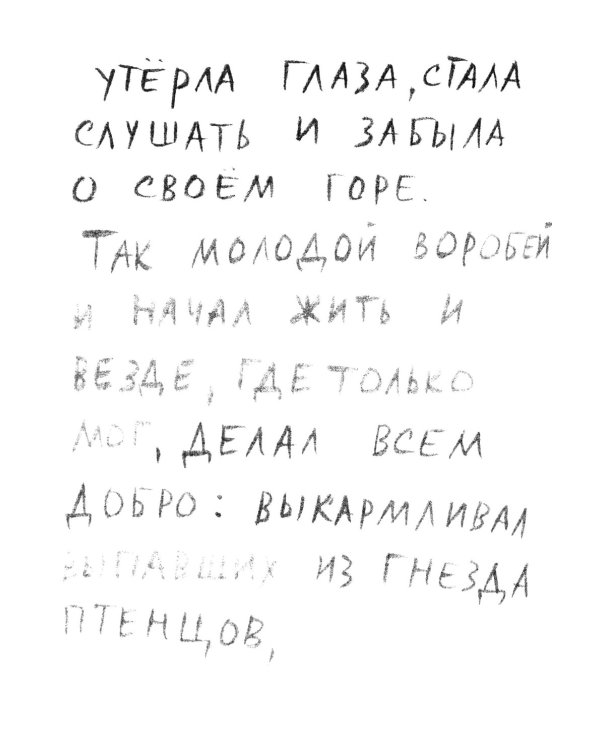 УТЁРЛА ГЛАЗА, СТАЛА
СЛУШАТЬ И ЗАБЫЛА
О СВОЁМ ГОРЕ.
ТАК МОЛОДОЙ ВОРОБЕЙ
И НАЧАЛ ЖИТЬ И
ВЕЗДЕ, ГДЕ ТОЛЬКО
МОГ, ДЕЛАЛ ВСЕМ
ДОБРО: ВЫКАРМЛИВАЛ
ВЫПАВШИХ ИЗ ГНЕЗДА
ПТЕНЦОВ,